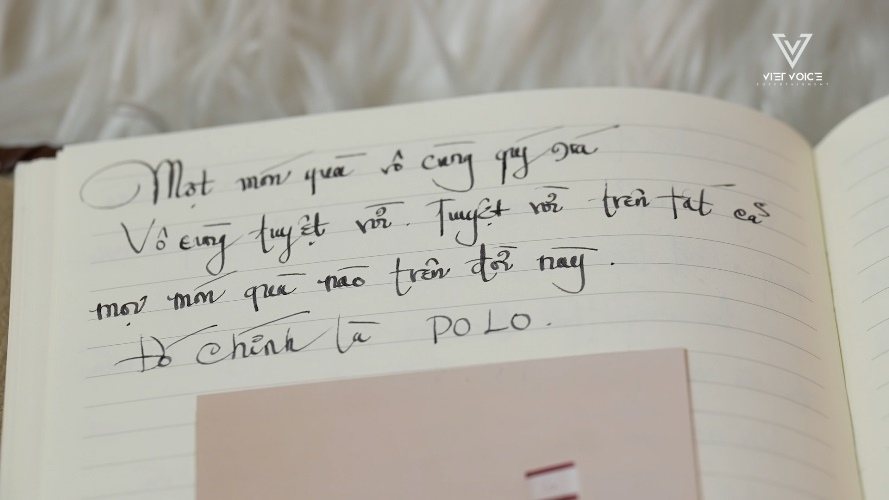 VIET VOICE
ENTERTAINMENT
Một món quà vô cùng quý giá
Vô cùng tuyệt vời. Tuyệt vời trên tất cả
mọi món quà nào trên đời này.
Đó chính là POLO.